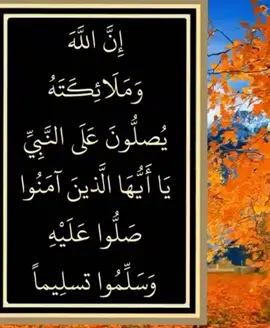 إِنَّ اللَّهَ
وَمَلَائِكَتَهُ
يُصلُّونَ عَلَى النَّبِيِّ
يَا أَيُّهَا الَّذينَ آمَنُوا
صَلُّوا عَلَيْهِ
وَسَلِّمُوا تسلِيماً